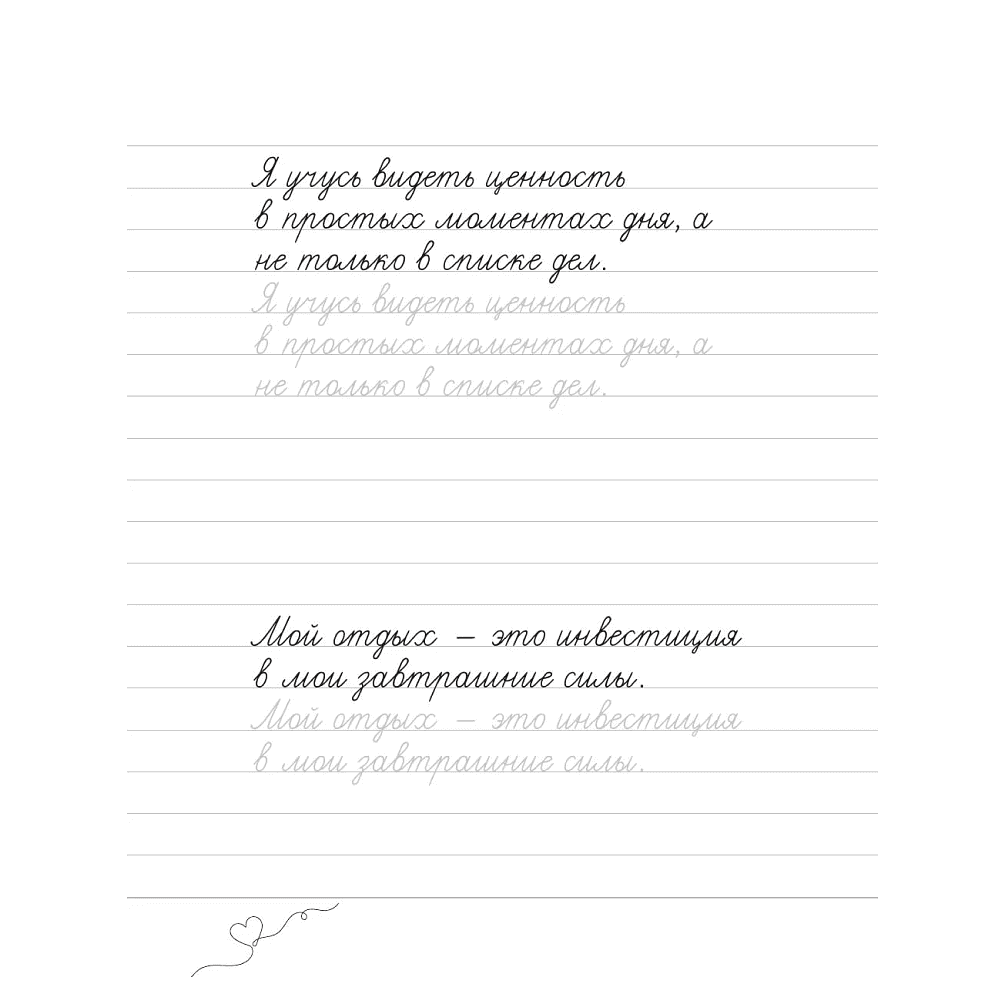 Я учусь видеть ценность
в простых моментах дня, а
не только в списке дел.
Я учусь видеть ценность
в простых моментах дня, а
не только в списке дел.
Мой отдых – это инвестиция
в мои завтрашние силы.
Мой отдых – это инвестиция
в мои завтрашние силы.